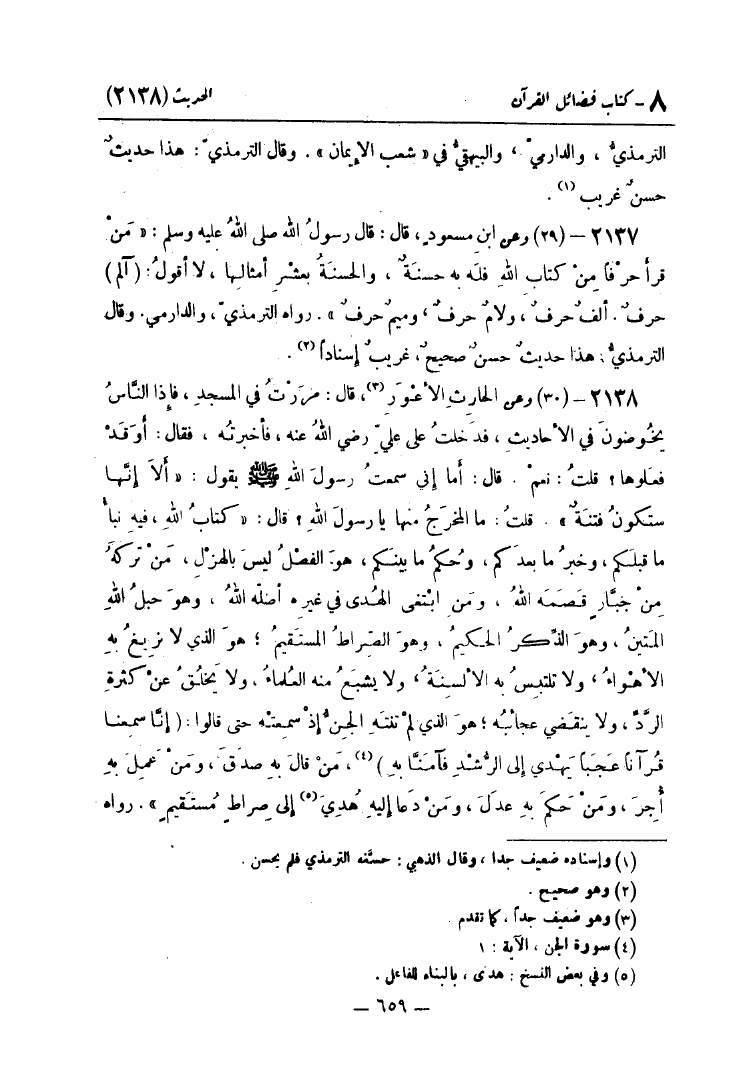 ٨ - كتاب فضائل القرآن الحديث (٢١٣٨)
الترمذيُّ ، والدارميّ ، والبيهقيُّ في « شعب الإيمان » . وقال الترمذيّ : هذا حديثٌ
حسنٌ غريب (١) .
٢١٣٧ - (٢٩) وعن ابن مسعودٍ ، قال : قال رسولُ اللهِ صلى اللهُ عليه وسلم : « مَنْ
قرأ حرفاً مِنْ كتابِ اللهِ فلَه به حسنةٌ ، والحسنةُ بعشْرِ أمثالِها ، لا أقولُ : ( آلم )
حرفٌ . ألفٌ حرفٌ ، ولامٌ حرفٌ ، وميمٌ حرفٌ » . رواه الترمذيّ ، والدارمي . وقال
الترمذيُّ : هذا حديثٌ حسنٌ صحيحٌ ، غريبٌ إسناداً (٢) .
٢١٣٨ - (٣٠) وعن الحارثِ الأعْوَرِ (٣) ، قال : مرَرْتُ في المسجدِ ، فإِذا النَّاسُ
يخُوضونَ في الأحاديثِ ، فدَخلتُ على عليّ رضي اللهُ عنه ، فأخبرتُه ، فقال : أوَقدْ
فعلوها ؟ قلتُ : نعمْ . قال : أما إني سمعتُ رسولَ اللهِ ﷺ يقول : « ألاَ إنَّها
ستكونُ فتنةٌ » . قلتُ : ما المخرَجُ منها يا رسولَ اللهِ ؟ قال : « كتابُ اللهِ ، فيه نبأُ
ما قبلَكم ، وخبرُ ما بعدَكم ، وحُكمُ ما بينَكم ، هوَ الفصْلُ ليسَ بالهزْلِ ، مَنْ تركَهُ
مِنْ جبَّارٍ قصَمَه اللهُ ، ومَنِ ابْتغى الهُدى في غيرِه أضلّه اللهُ ، وهوَ حبلُ اللهِ
المَتينُ ، وهوَ الذِّكرُ الحكيمُ ، وهوَ الصِّراطُ المستقيمُ ؛ هوَ الذي لا تزيغُ بهِ
الأهْواءُ ، ولا تلتبِسُ به الألسِنةُ ، ولا يشبَعُ منه العُلماءُ ، ولا يَخلُقُ عنْ كثرةِ
الرَّدِّ ، ولا ينقَضي عجائبُه ؛ هوَ الذي لمْ تنتَهِ الجنُّ إذْ سمِعتْه حتى قالوا : ( إنَّا سمِعنا
قُرآناً عَجَباً يَهْدي إلى الرُّشْدِ فآمنَّا به ) (٤) ، مَنْ قالَ به صدَقَ ، ومَنْ عمِلَ به
أُجِرَ ، ومَنْ حَكمَ بهِ عدَلَ ، ومَنْ دَعا إليهِ هُدِيَ (٥) إلى صِراطٍ مُستقيمٍ » . رواه
(١) وإسناده ضعيف جدا ، وقال الذهبي : حسَّنه الترمذي فلم يحسن .
(٢) وهو صحيح .
(٣) وهو ضعيف جداً ، كما تقدم .
(٤) سورة الجن ، الآية : ١
(٥) وفي بعض النسخ : هدى ، بالبناء للفاعل .
— ٦٥٩ —